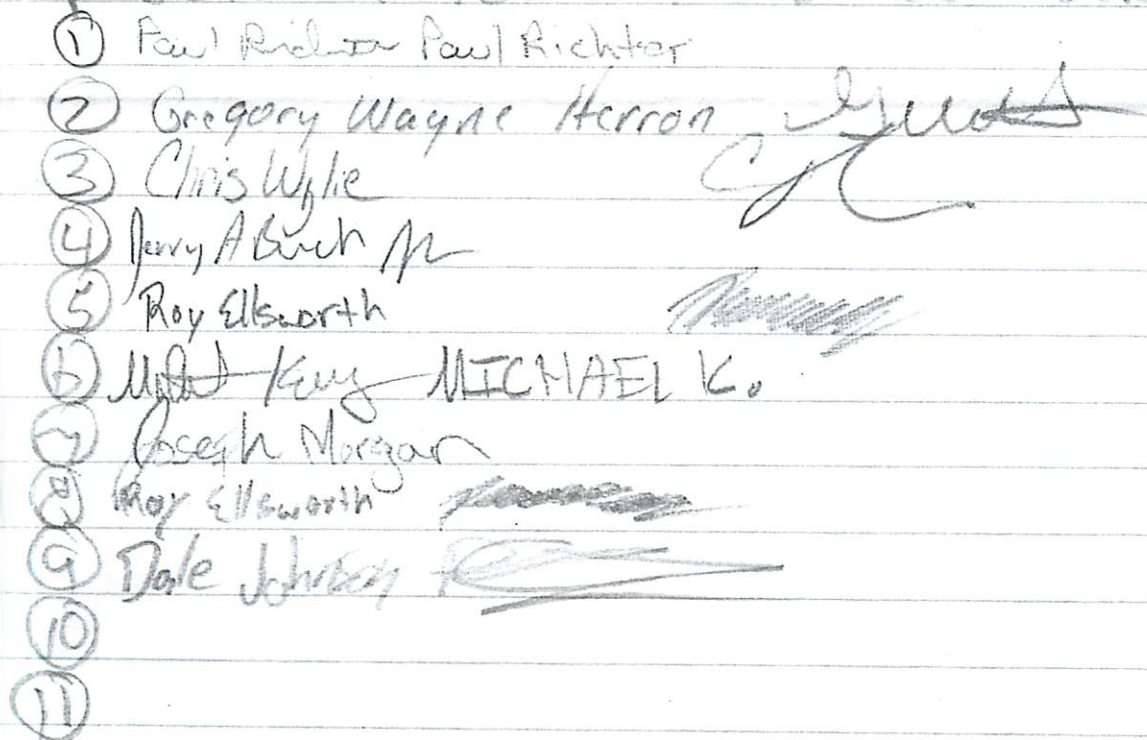 1 Paul Richter Paul Richter
2 Gregory Wayne Herron
3 Chris Wylie
4 Jerry A Burch Jr
5 Roy Ellsworth
6 MICHAEL K.
7 Joseph Morgan
8 Roy Ellsworth
9 Dale Johnson
10
11